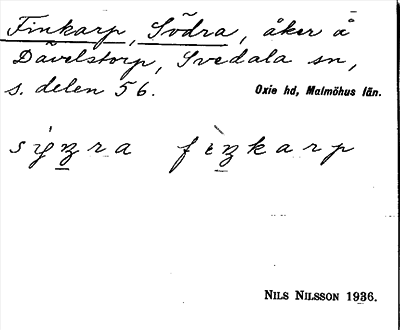 Finkarp, Södra, åker å
Dävelstorp, Svedala sn,
s. delen 56.
Oxie hd, Malmöhus län.
finkarp
NILS NILSSON 1936.